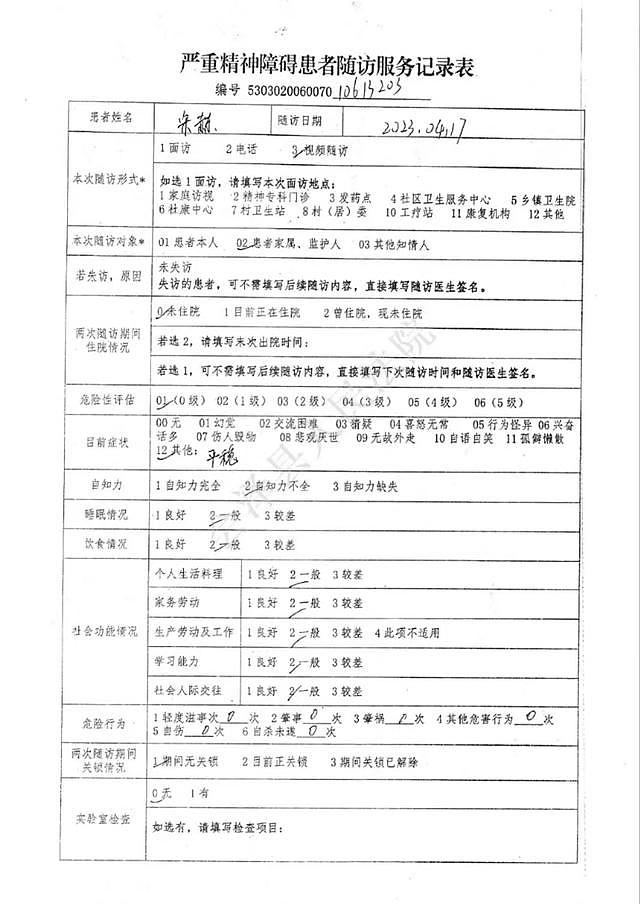 严重精神障碍患者随访服务记录表
编号 5303020060070 10613203
患者姓名 宋赫 随访日期 2023.04.17
本次随访形式* 1面访 2电话 3视频随访
如选1面访，请填写本次面访地点：
1家庭访视 2精神专科门诊 3发药点 4社区卫生服务中心 5乡镇卫生院
6社康中心 7村卫生站 8村（居）委 10工疗站 11康复机构 12其他
本次随访对象* 01患者本人 02患者家属、监护人 03其他知情人
若失访，原因 未失访
失访的患者，可不需填写后续随访内容，直接填写随访医生签名。
两次随访期间住院情况 0未住院 1目前正在住院 2曾住院，现未住院
若选2，请填写末次出院时间：
若选1，可不需填写后续随访内容，直接填写下次随访时间和随访医生签名。
危险性评估 01(0级) 02(1级) 03(2级) 04(3级) 05(4级) 06(5级)
目前症状 00无 01幻觉 02交流困难 03猜疑 04喜怒无常 05行为怪异 06兴奋
话多 07伤人毁物 08悲观厌世 09无故外走 10自语自笑 11孤僻懒散
12其他：平稳
自知力 1自知力完全 2自知力不全 3自知力缺失
睡眠情况 1良好 2一般 3较差
饮食情况 1良好 2一般 3较差
社会功能情况 个人生活料理 1良好 2一般 3较差
家务劳动 1良好 2一般 3较差
生产劳动及工作 1良好 2一般 3较差 4此项不适用
学习能力 1良好 2一般 3较差
社会人际交往 1良好 2一般 3较差
危险行为 1轻度滋事次 0 次 2肇事 0 次 3肇祸 0 次 4其他危害行为 0 次
5自伤 0 次 6自杀未遂 0 次
两次随访期间关锁情况 1期间无关锁 2目前正关锁 3期间关锁已解除
实验室检查 0无 1有
如选有，请填写检查项目：
县人民法院